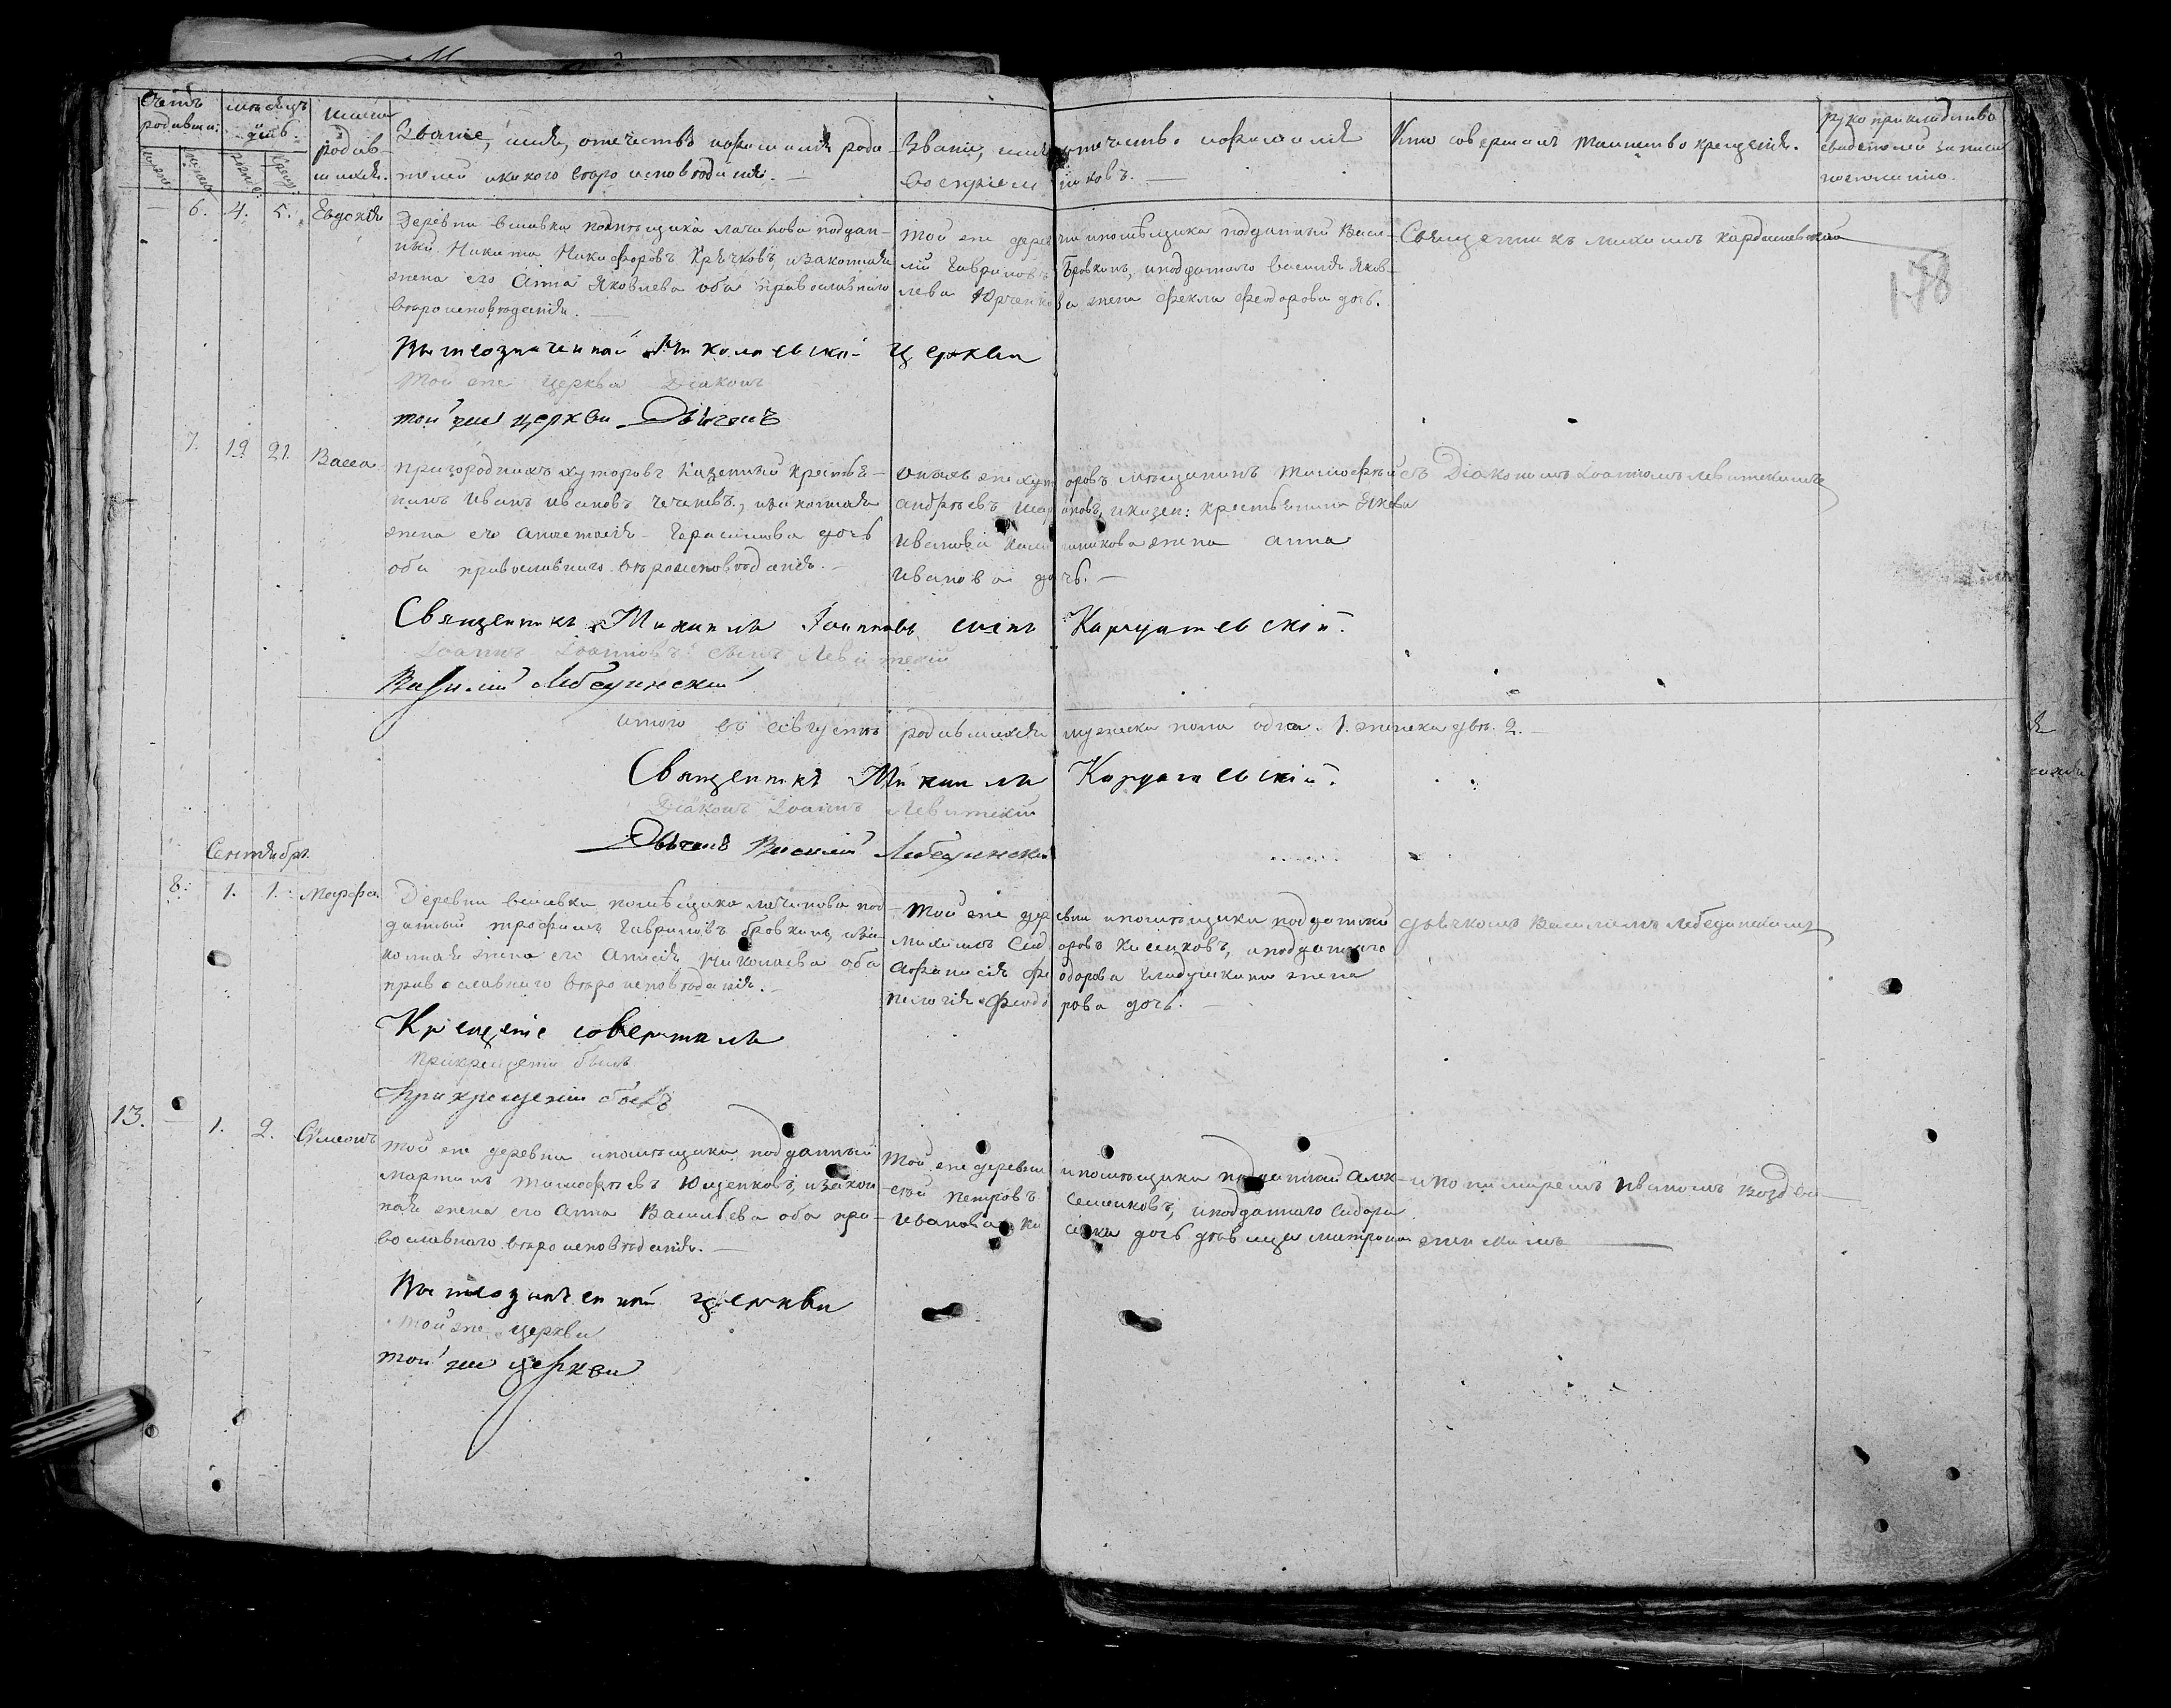 Счетъ родивших: мѣсяцъ день имена родив-шихся. Званіе, имя, отечество и фамилия роди-телей и какого вѣроисповѣданія. — Званіе, имя отечество и фамилия воспріемниковъ. — Кто совершалъ таинство крещенія. рукоприкладство свидетелей записи по желанію.
178
— 6. 4. 5. Евдокія
Деревни помѣщика Лачинова поддан-
ный Никита Никифоровъ Крючковъ, и законная
жена его Анна Яковлева оба православнаго
вѣроисповѣданія. —
той же деревни и помѣщика подданный Васи-
лій Гавриловъ Бровкинъ, и подданного Василія Яков-
лева Юрченкова жена Фекла Феодорова дочь.
Священникъ Михаилъ Кардашевскій
Вышеозначенной Николаевской церкви
той же церкви Діаконъ
той же церкви Дьячокъ
7. 19 21. Васса
Пригородныхъ хуторовъ Казенный крестья-
нинъ Иванъ Ивановъ и законная
жена его Анастасія Герасимова дочь
оба православнаго вѣроисповѣданія. —
онихъ же хуторовъ мещанинъ Тимофѣй
Андрѣевъ и казен: крестьянина Якова
Иванова жена Анна
Иванова дочь. —
съ Діакономъ Іоанномъ Левитскимъ
Священникъ Михаилъ Іоанновъ сынъ Кардашевскій.
Іоаннъ Іоанновъ сынъ Левитскій
Василій Лебединскій
итого въ Августѣ родившихся мужеска пола одна. 1. женска двѣ. 2. —
Священникъ Михаилъ Кардашевскій.
Діаконъ Іоаннъ Левитскій
Дьячокъ Василій Лебединскій
Сентябрь
8. 1. 1. Марфа
Деревни помѣщика Лачинова под-
данный Трофимъ Гавриловъ Бровкинъ, и за-
конная жена его Анисія Николаева оба
православнаго вѣроисповѣданія. —
Той же деревни и помѣщика подданный
Михаилъ Сидоровъ и подданного
Афанасія Феодорова жена
Пелагія Феодорова дочь. —
дьячкомъ Василіемъ Лебединскимъ
Крещеніе совершалъ
При крещеніи былъ
При крещеніи былъ
13. — 1. 2. Симеонъ
Той же деревни и помѣщика подданный
Мартинъ Тимофѣевъ Ющенковъ, и закон-
ная жена его Анна Васильева оба пра-
вославнаго вѣроисповѣданія. —
Той же деревни и помѣщика подданный Алек-
сѣй Петровъ Семенковъ, и подданного Сидора
Иванова дочь дѣвица Матрона
и пономаремъ Иваномъ Воздви-
женскимъ
Вышеозначенной церкви
той же церкви
той же церкви